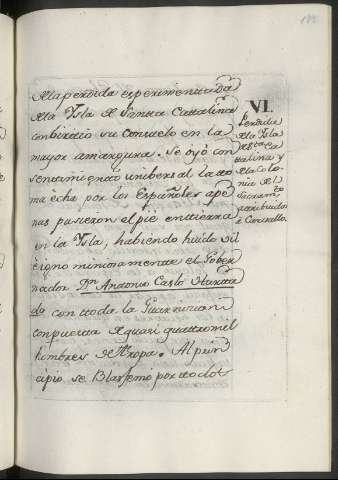 182
dela perdida experimentada
dela Ysla de Santa Cattalina
combirttió su Consuelo en la
mayor amargura. Se oyó con
senttimientto unibersal la tto
ma écha por los Españoles ape
nas pusieron el pié en ttierra
en la Ysla, habiendo huido vil
é ignominiosamentte el Gober
nador Dn. Anttonio Carlo Hurtta
do con ttoda la Guarnicion
compuestta de quasi quattro mil
hombres de Tropa. Al prin
cipio se Blasfemó por ttodos
VI.
Perdida
de la Ysla
de Sta. Ca
ttalina y
de la Colo
nia del
Sacramto.
attribuidos
à Carvallo.